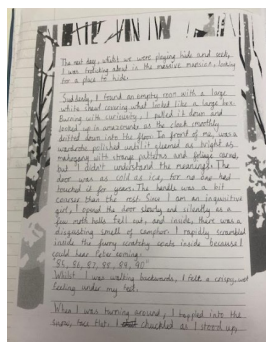 The next day, whilst we were playing hide and seek,
I was trotting about in the massive mansion, looking
for a place to hide.
Suddenly, I found an empty room with a large
white sheet covering what looked like a large box.
Burning with curiousity, I pulled it down and
looked up in amazement as the cloak smoothly
drifted down into the floor. In front of me, was a
wardrobe polished until it gleamed as bright as
mahogany with strange patterns and foliage carved,
but I didn't understand the meaning. The
door was as cold as ice, for no one had
touched it for years. The handle was a bit
coarser than the rest. Since I am an inquisitive
girl, I opened the door slowly and silently as a
few moth balls fell out, and inside, there was a
disgusting smell of camphor. I rapidly scrambled
inside the furry scratchy coats inside because I
could hear Peter coming.
"85, 86, 87, 88, 89, 90"
Whilst I was walking backwards, I felt a crispy, wet
feeling under my feet.
When I was turning around, I hopped into the
snow, face flat. chuckled as I stood up,